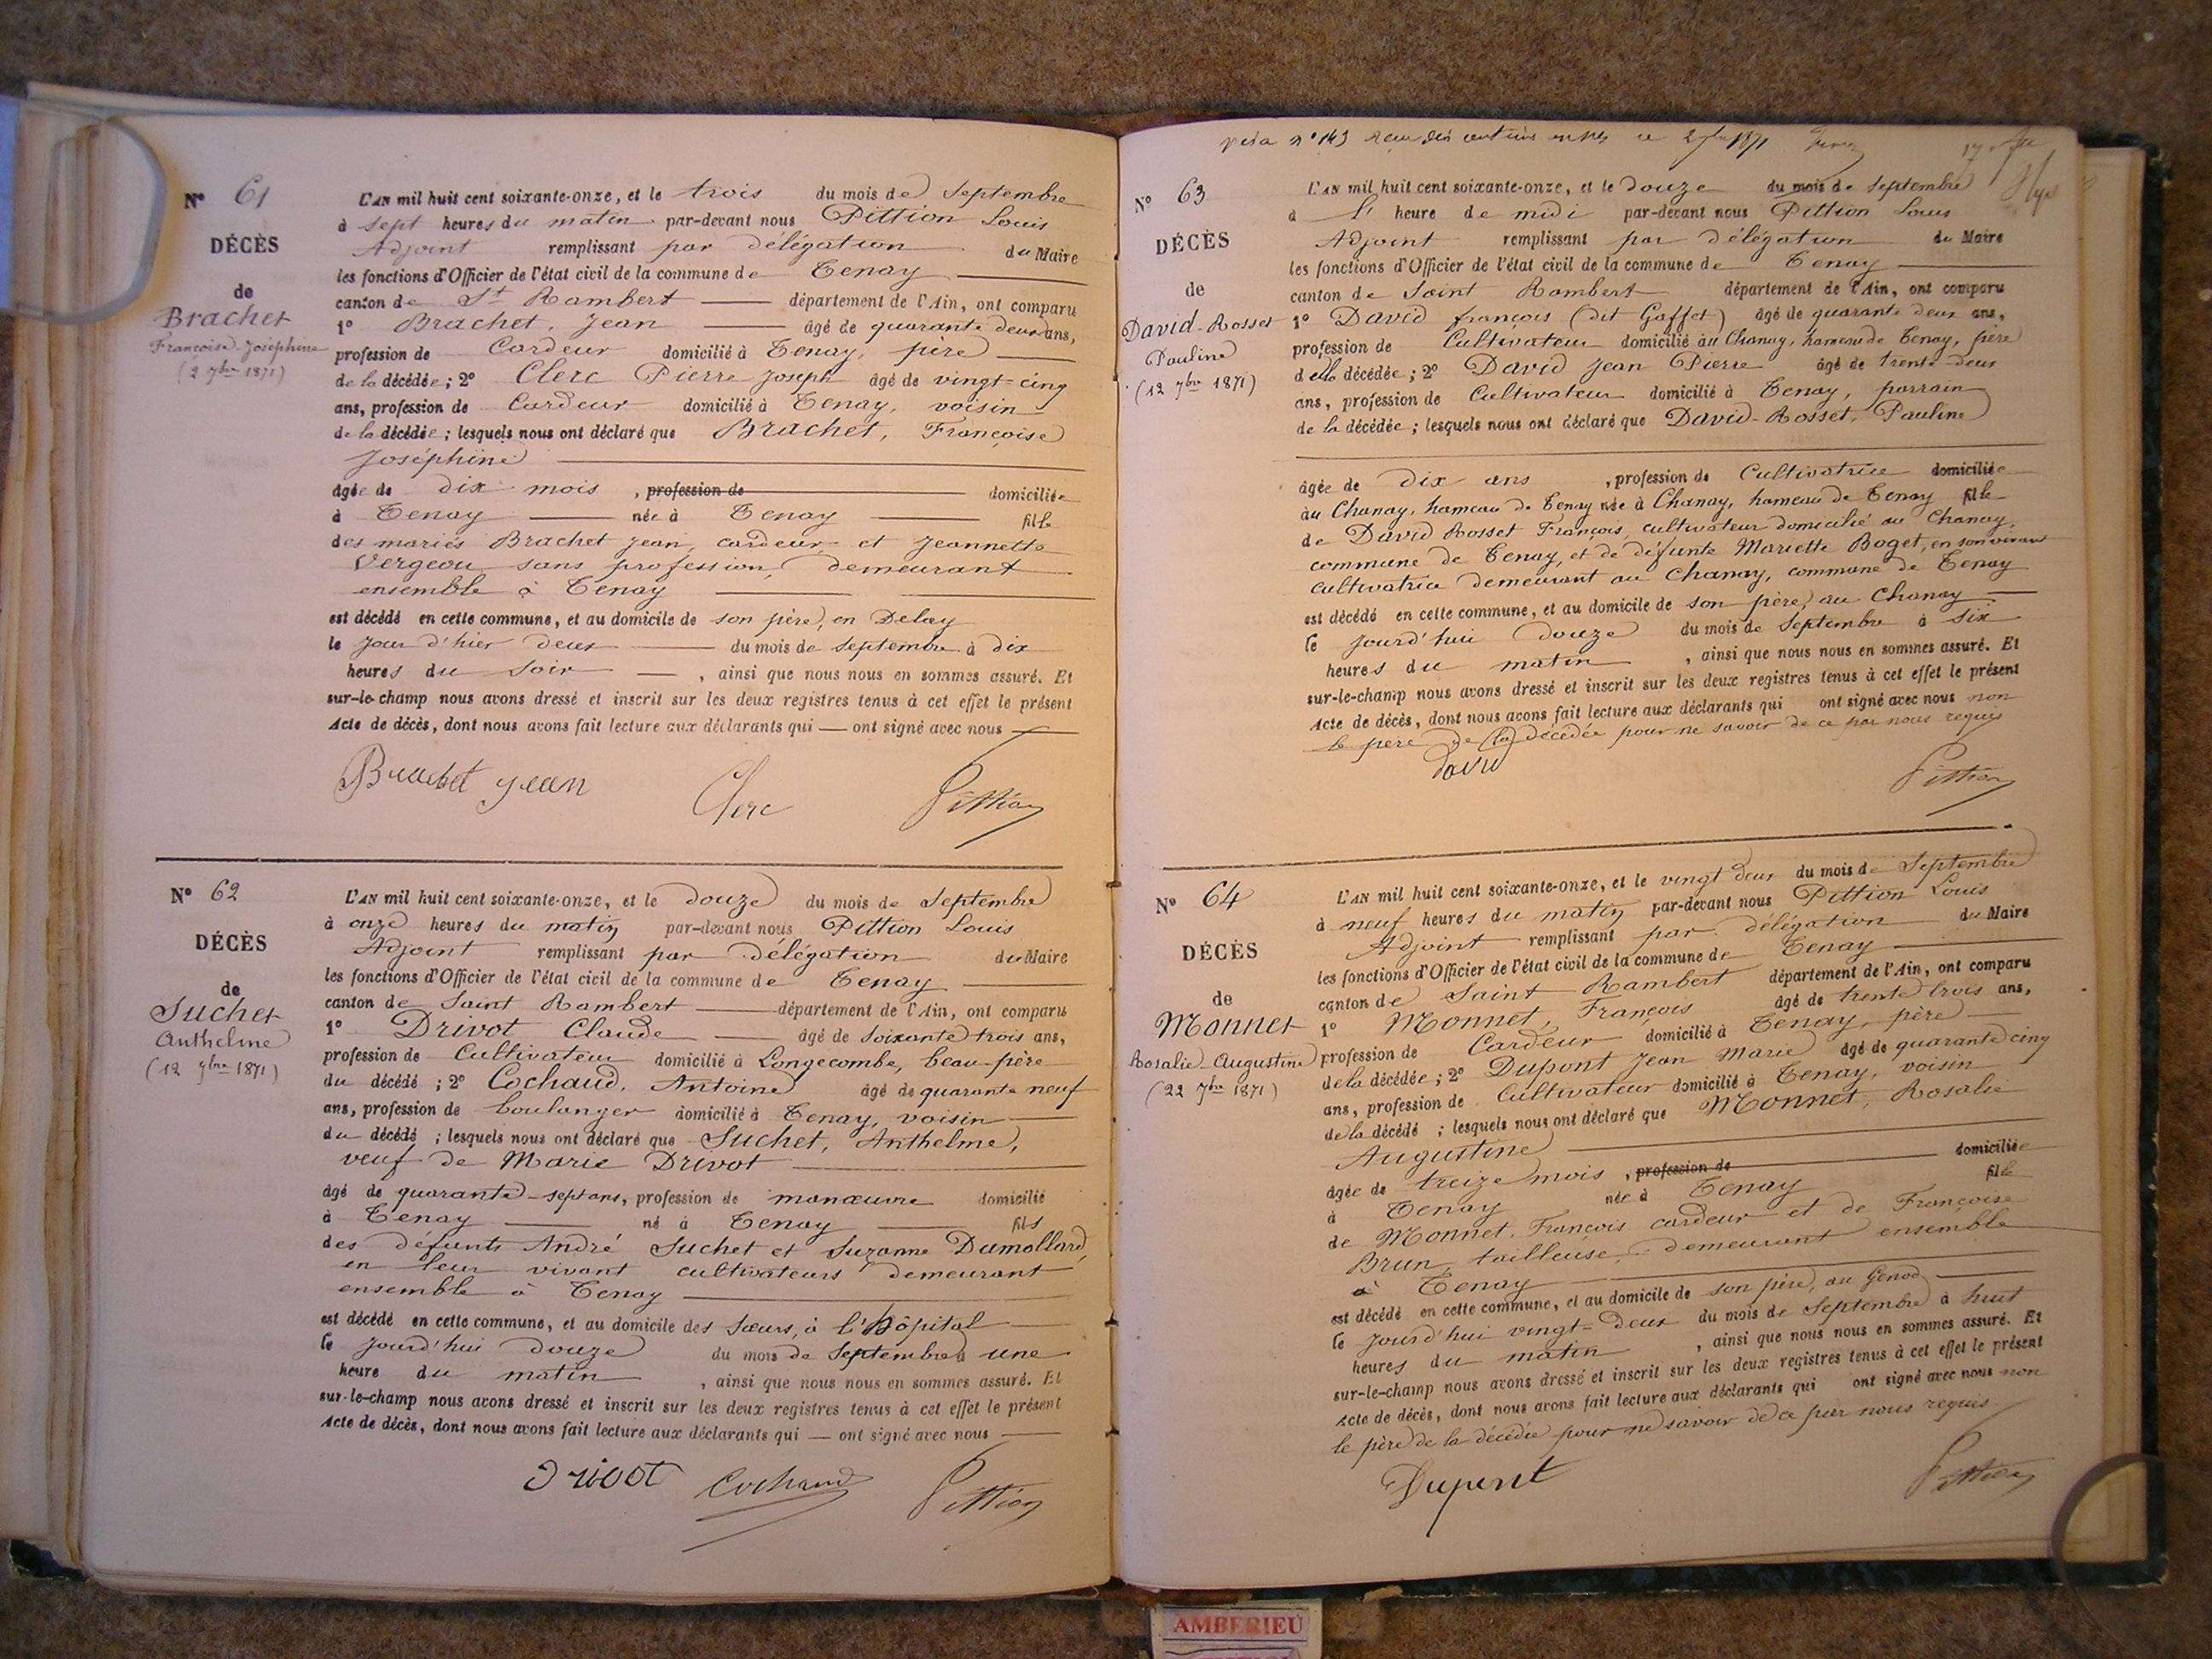 N° 61
DÉCÈS
de
Brachet
Françoise-Joséphine
(2 7bre 1871)
L'AN mil huit cent soixante-onze, et le trois du mois de Septembre
à sept heures du matin par-devant nous Pittion Louis
Adjoint remplissant par délégation du Maire
les fonctions d'Officier de l'état civil de la commune de Tenay
canton de St Rambert département de l'Ain, ont comparu
1° Brachet, Jean âgé de quarante deux ans,
profession de Cardeur domicilié à Tenay, père
de la décédée ; 2° Clerc Pierre Joseph âgé de vingt-cinq
ans, profession de Cardeur domicilié à Tenay, voisin
de la décédée ; lesquels nous ont déclaré que Brachet, Françoise
Joséphine
âgée de dix mois , profession de domiciliée
à Tenay née à Tenay fille
des mariés Brachet Jean, cardeur et Jeannette
Vergeou sans profession, demeurant
ensemble à Tenay
est décédé en cette commune, et au domicile de son père, en Delay
le jour d'hier deux du mois de Septembre à dix
heures du soir , ainsi que nous nous en sommes assuré. Et
sur-le-champ nous avons dressé et inscrit sur les deux registres tenus à cet effet le présent
Acte de décès, dont nous avons fait lecture aux déclarants qui ont signé avec nous
Brachet Jean Clerc Pittion
N° 62
DÉCÈS
de
Suchet
Anthelme
(12 7bre 1871)
L'AN mil huit cent soixante-onze, et le douze du mois de Septembre
à onze heures du matin par-devant nous Pittion Louis
Adjoint remplissant par délégation du Maire
les fonctions d'Officier de l'état civil de la commune de Tenay
canton de Saint Rambert département de l'Ain, ont comparu
1° Drivot Claude âgé de soixante trois ans,
profession de Cultivateur domicilié à Longecombe, beau-père
du décédé ; 2° Cochaud, Antoine âgé de quarante neuf
ans, profession de boulanger domicilié à Tenay, voisin
du décédé ; lesquels nous ont déclaré que Suchet, Anthelme,
veuf de Marie Drivot
âgé de quarante-sept ans, profession de manœuvre domicilié
à Tenay né à Tenay fils
des défunts André Suchet et Suzanne Dumollard,
en leur vivant cultivateurs demeurant
ensemble à Tenay
est décédé en cette commune, et au domicile des Sœurs, à l'hôpital
le jourd'hui douze du mois de Septembre à une
heure du matin , ainsi que nous nous en sommes assuré. Et
sur-le-champ nous avons dressé et inscrit sur les deux registres tenus à cet effet le présent
Acte de décès, dont nous avons fait lecture aux déclarants qui ont signé avec nous
Drivot Cochaud Pittion
N° 63
DÉCÈS
de
David-Rosset
Pauline
(12 7bre 1871)
L'AN mil huit cent soixante-onze, et le douze du mois de Septembre
à l' heure de midi par-devant nous Pittion Louis
Adjoint remplissant par délégation du Maire
les fonctions d'Officier de l'état civil de la commune de Tenay
canton de Saint Rambert département de l'Ain, ont comparu
1° David françois (dit Goffet) âgé de quarante deux ans,
profession de Cultivateur domicilié au Chanay, hameau de Tenay, père
de la décédée ; 2° David Jean Pierre âgé de trente-deux
ans, profession de Cultivateur domicilié à Tenay, parrain
de la décédée ; lesquels nous ont déclaré que David-Rosset, Pauline
âgée de dix ans , profession de Cultivatrice domiciliée
au Chanay, hameau de Tenay née à Chanay, hameau de Tenay fille
de David Rosset François, cultivateur domicilié au Chanay,
commune de Tenay, et de défunte Mariette Boget, en son vivant
cultivatrice demeurant au Chanay, commune de Tenay
est décédé en cette commune, et au domicile de son père, au Chanay
le jourd'hui douze du mois de Septembre à six
heures du matin , ainsi que nous nous en sommes assuré. Et
sur-le-champ nous avons dressé et inscrit sur les deux registres tenus à cet effet le présent
Acte de décès, dont nous avons fait lecture aux déclarants qui ont signé avec nous non
le père de la décédée pour ne savoir de ce par nous requis
David Pittion
N° 64
DÉCÈS
de
Monnet
Rosalie-Augustine
(22 7bre 1871)
L'AN mil huit cent soixante-onze, et le vingt deux du mois de Septembre
à neuf heures du matin par-devant nous Pittion Louis
Adjoint remplissant par délégation du Maire
les fonctions d'Officier de l'état civil de la commune de Tenay
canton de Saint Rambert département de l'Ain, ont comparu
1° Monnet, François âgé de trente trois ans,
profession de Cardeur domicilié à Tenay, père
de la décédée ; 2° Dupont Jean Marie âgé de quarante cinq
ans, profession de Cultivateur domicilié à Tenay, voisin
de la décédé ; lesquels nous ont déclaré que Monnet, Rosalie
Augustine
âgée de treize mois , profession de domiciliée
à Tenay née à Tenay fille
de Monnet, François cardeur et de Françoise
Brun, tailleuse, demeurant ensemble
à Tenay
est décédé en cette commune, et au domicile de son père, au Genod
le jourd'hui vingt-deux du mois de Septembre à huit
heures du matin , ainsi que nous nous en sommes assuré. Et
sur-le-champ nous avons dressé et inscrit sur les deux registres tenus à cet effet le présent
Acte de décès, dont nous avons fait lecture aux déclarants qui ont signé avec nous non
le père de la décédée pour ne savoir de ce par nous requis
Dupont Pittion
AMBERIEU